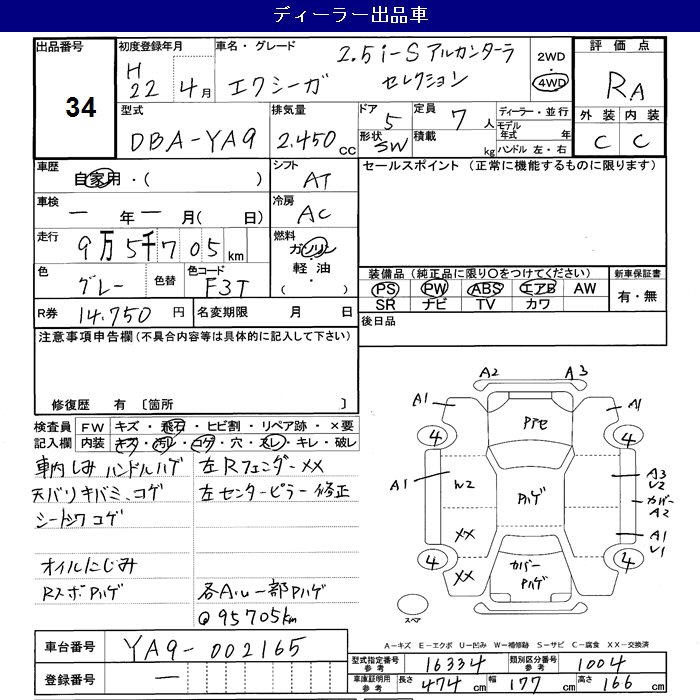 ディーラー出品車
出品番号
34
初度登録年月
H
22年4月
車名・グレード
2.5i-S アルカンターラ
エクシーガ セレクション
2WD
・
4WD
評価点
RA
外装 内装
C C
型式
DBA-YA9
排気量
2.450cc
ドア 5
形状 SW
定員 7人
積載 kg
ディーラー・並行
モデル年式 年
ハンドル 左・右
車歴
自家用・( )
シフト
AT
セールスポイント(正常に機能するものに限ります)
車検
ー年ー月(日)
冷房
AC
走行
9万5千705km
燃料
ガソリン
軽油
( ・ )
色
グレー
色替
色コード
F3T
装備品(純正品に限り○をつけてください)
PS PW ABS エアB AW
SR ナビ TV カワ
新車保証書
有・無
R券 14.750円
名変期限 月 日
後日品
注意事項申告欄(不具合内容等は具体的に記入して下さい)
修復歴 有 〔箇所 〕
検査員記入欄
FW キズ・飛石・ヒビ割・リペア跡・×要
内装 キズ・汚レ・コゲ・穴・スレ・キレ・破レ
車内しみ ハンドルハゲ
左Rフェンダー××
天バリキバミ、コゲ
左センターピラー修正
シート3ヶコゲ
オイルにじみ
RスポPハゲ
各Aルー部Pハゲ
@95705km
A2 A3
A1 A1
Pアセ
4 4
A1
W2
Pハゲ
A3
U2
カバー
A2
××
A1
U1
××
4 4
カバー
Pハゲ
スペア
A-キズ E-エクボ U-凹み W-補修跡 S-サビ C-腐食 XX-交換済
車台番号 YA9-002165
登録番号 ー
型式指定番号 参考 16334
類別区分番号 参考 1004
車庫証明用 参考 長さ 474cm 幅 177cm 高さ 166cm